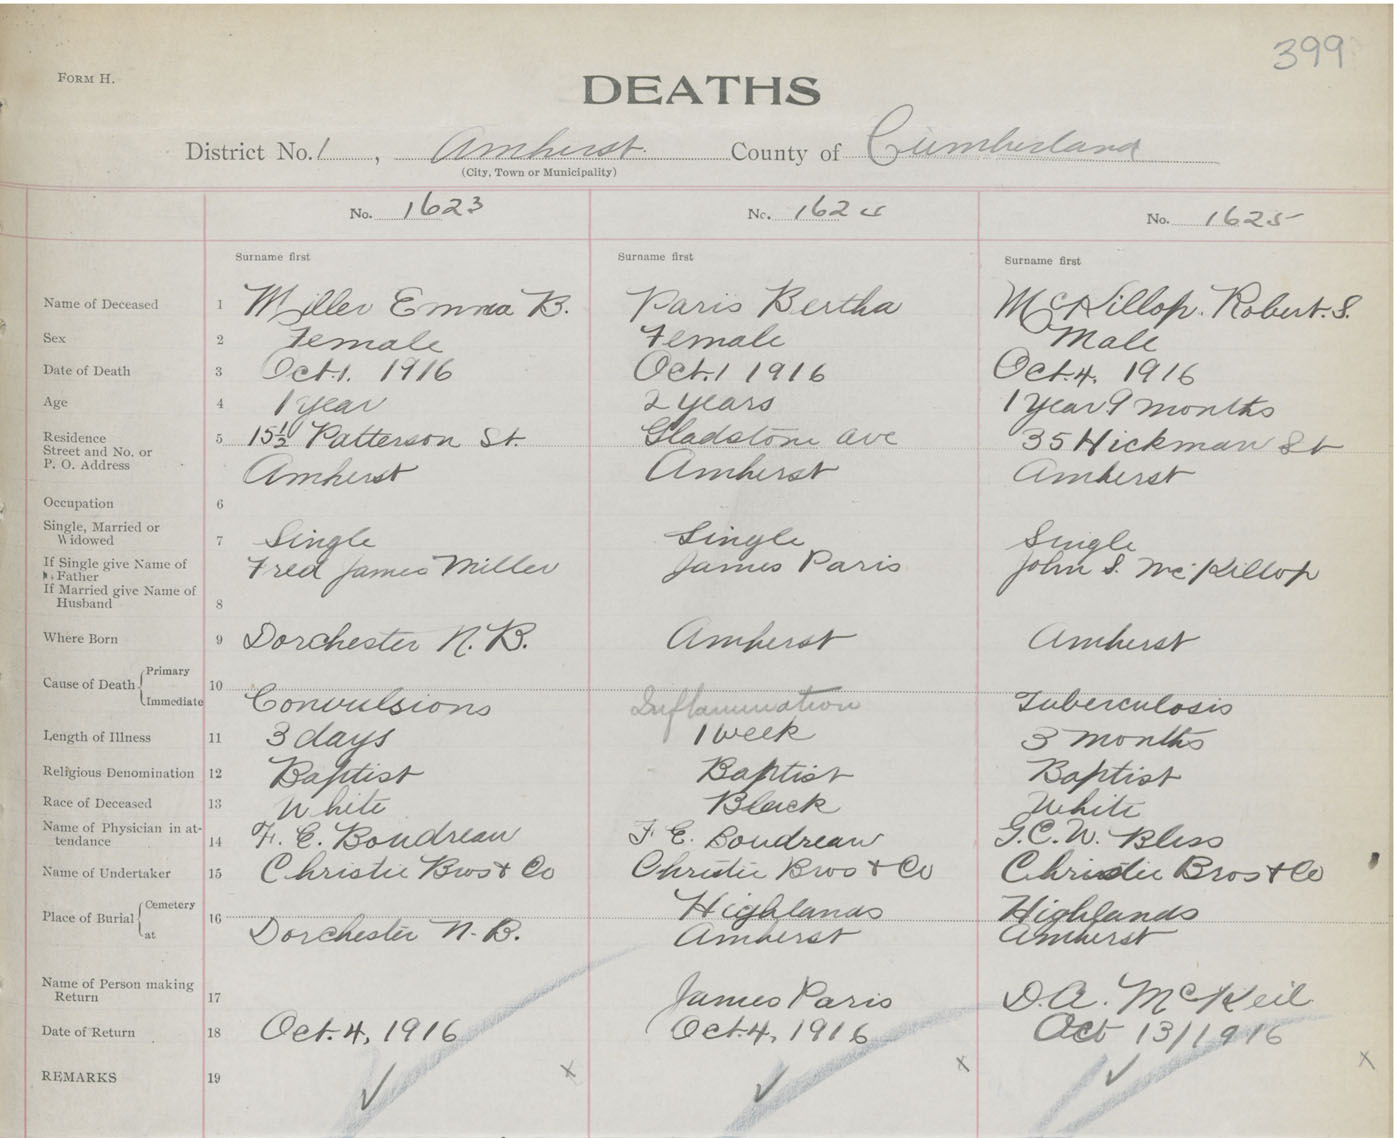 399
FORM H.
DEATHS
District No. 1, Amherst County of Cumberland
(City, Town or Municipality)
No. 1623 No. 1624 No. 1625
Surname first Surname first Surname first
Name of Deceased 1 Miller Emma B. Paris Bertha McKillop. Robert. S.
Sex 2 Female Female Male
Date of Death 3 Oct. 1. 1916 Oct. 1 1916 Oct. 4. 1916
Age 4 1 year 2 years 1 year 9 months
Residence 5 15½ Patterson St. Gladstone Ave 35 Hickman St
Street and No. or
P. O. Address Amherst Amherst Amherst
Occupation 6
Single, Married or
Widowed 7 Single Single Single
If Single give Name of
Father Fred James Miller James Paris John S. McKillop
If Married give Name of
Husband 8
Where Born 9 Dorchester N. B. Amherst Amherst
Cause of Death { Primary 10
Immediate Convulsions Inflammation Tuberculosis
Length of Illness 11 3 days 1 week 3 months
Religious Denomination 12 Baptist Baptist Baptist
Race of Deceased 13 White Black White
Name of Physician in at-
tendance 14 F. E. Boudreau F E. Boudreau G. C. W. Bliss
Name of Undertaker 15 Christie Bros & Co Christie Bros & Co Christie Bros & Co
Place of Burial { Cemetery 16 Highlands Highlands
at Dorchester N. B. Amherst Amherst
Name of Person making
Return 17 James Paris D. A. McKeil
Date of Return 18 Oct. 4, 1916 Oct. 4, 1916 Oct 13/1916
REMARKS 19 ✓ x ✓ x ✓ x